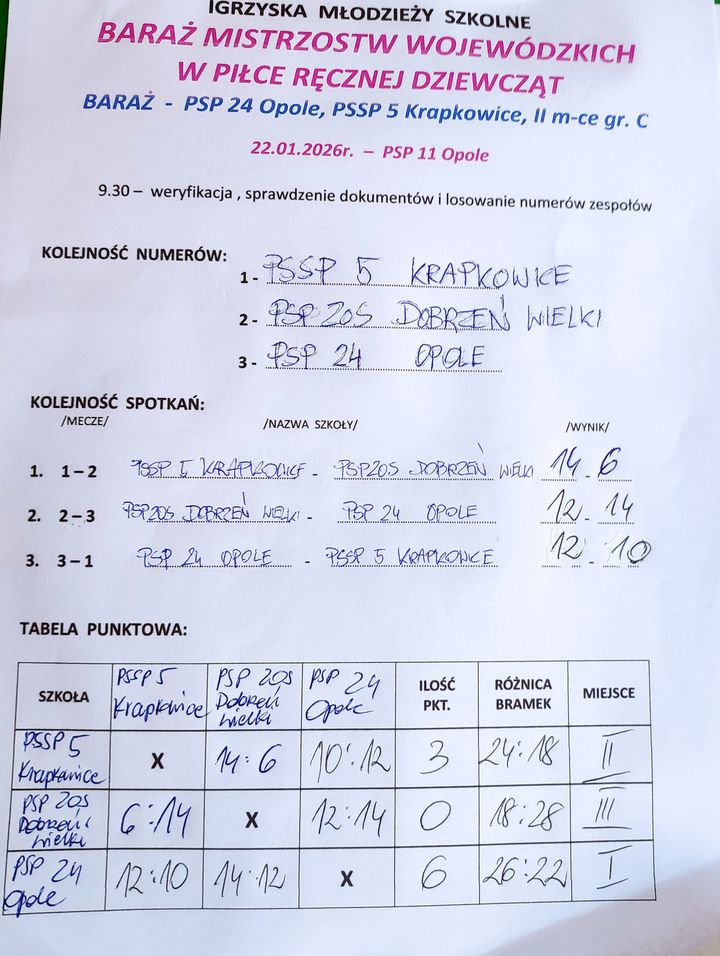 IGRZYSKA MŁODZIEŻY SZKOLNE
BARAŻ MISTRZOSTW WOJEWÓDZKICH
W PIŁCE RĘCZNEJ DZIEWCZĄT
BARAŻ - PSP 24 Opole, PSSP 5 Krapkowice, II m-ce gr. C
22.01.2026r. – PSP 11 Opole
9.30 – weryfikacja , sprawdzenie dokumentów i losowanie numerów zespołów
KOLEJNOŚĆ NUMERÓW:
1 - PSSP 5 KRAPKOWICE
2 - PSP ZOS DOBRZEŃ WIELKI
3 - PSP 24 OPOLE
KOLEJNOŚĆ SPOTKAŃ:
/MECZE/ /NAZWA SZKOŁY/ /WYNIK/
1. 1 – 2 PSSP 5 KRAPKOWICE - PSP ZOS DOBRZEŃ WIELKI 14 - 6
2. 2 – 3 PSP ZOS DOBRZEŃ WIELKI - PSP 24 OPOLE 12 - 14
3. 3 – 1 PSP 24 OPOLE - PSSP 5 KRAPKOWICE 12 - 10
TABELA PUNKTOWA:
SZKOŁA PSSP 5 Krapkowice PSP ZOS Dobrzeń Wielki PSP 24 Opole ILOŚĆ PKT. RÓŻNICA BRAMEK MIEJSCE
PSSP 5 Krapkowice X 14:6 10:12 3 24:18 II
PSP ZOS Dobrzeń Wielki 6:14 X 12:14 0 18:28 III
PSP 24 Opole 12:10 14:12 X 6 26:22 I